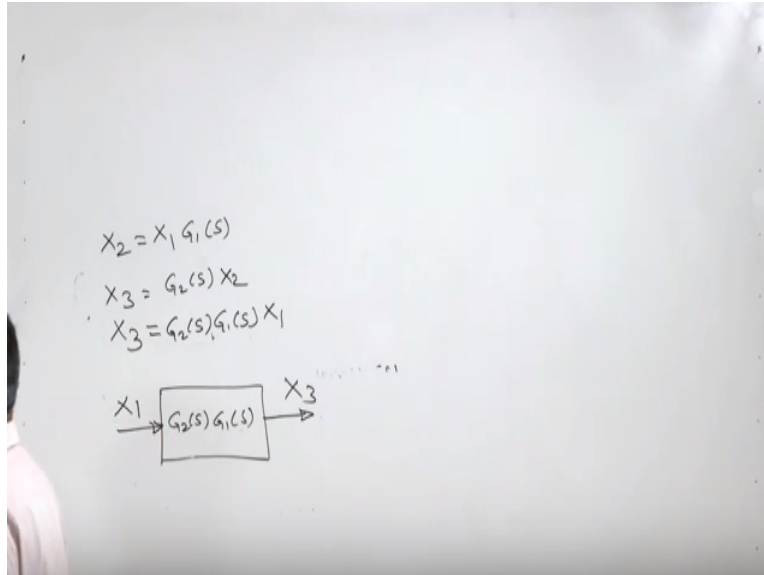 X₂ = X₁ G₁(S)
X₃ = G₂(S) X₂
X₃ = G₂(S) G₁(S) X₁
X₁ G₂(S) G₁(S) X₃